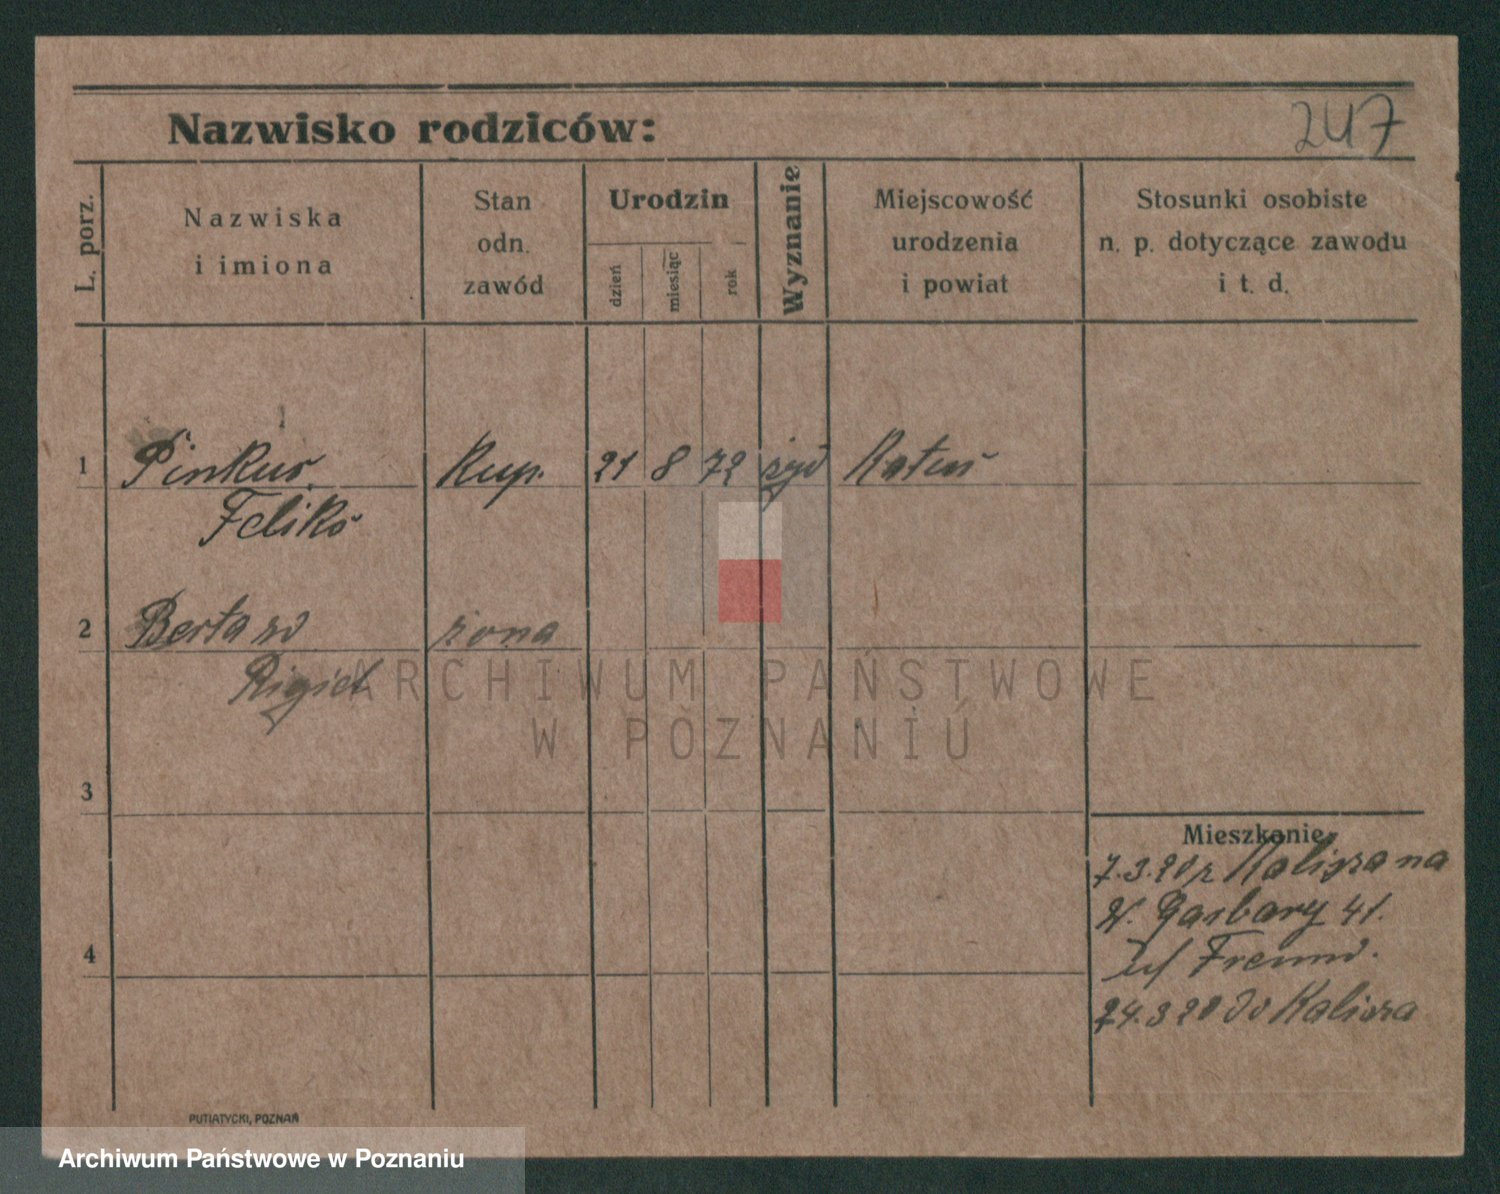 Nazwisko rodziców:
247
L. porz.
Nazwiska
i imiona
Stan
odn.
zawód
Urodzin
dzień
miesiąc
rok
Wyznanie
Miejscowość
urodzenia
i powiat
Stosunki osobiste
n. p. dotyczące zawodu
i t. d.
1 Pinkus Kup. 21 8 72 żyd
Feliks
2 Berta żona
3
Mieszkanie
7.3.20 z Kalisza na
W. Garbary 41.
24.3 20 do Kalisza
4
PUTIATYCKI, POZNAŃ
ARCHIWUM PAŃSTWOWE
W POZNANIU
Archiwum Państwowe w Poznaniu